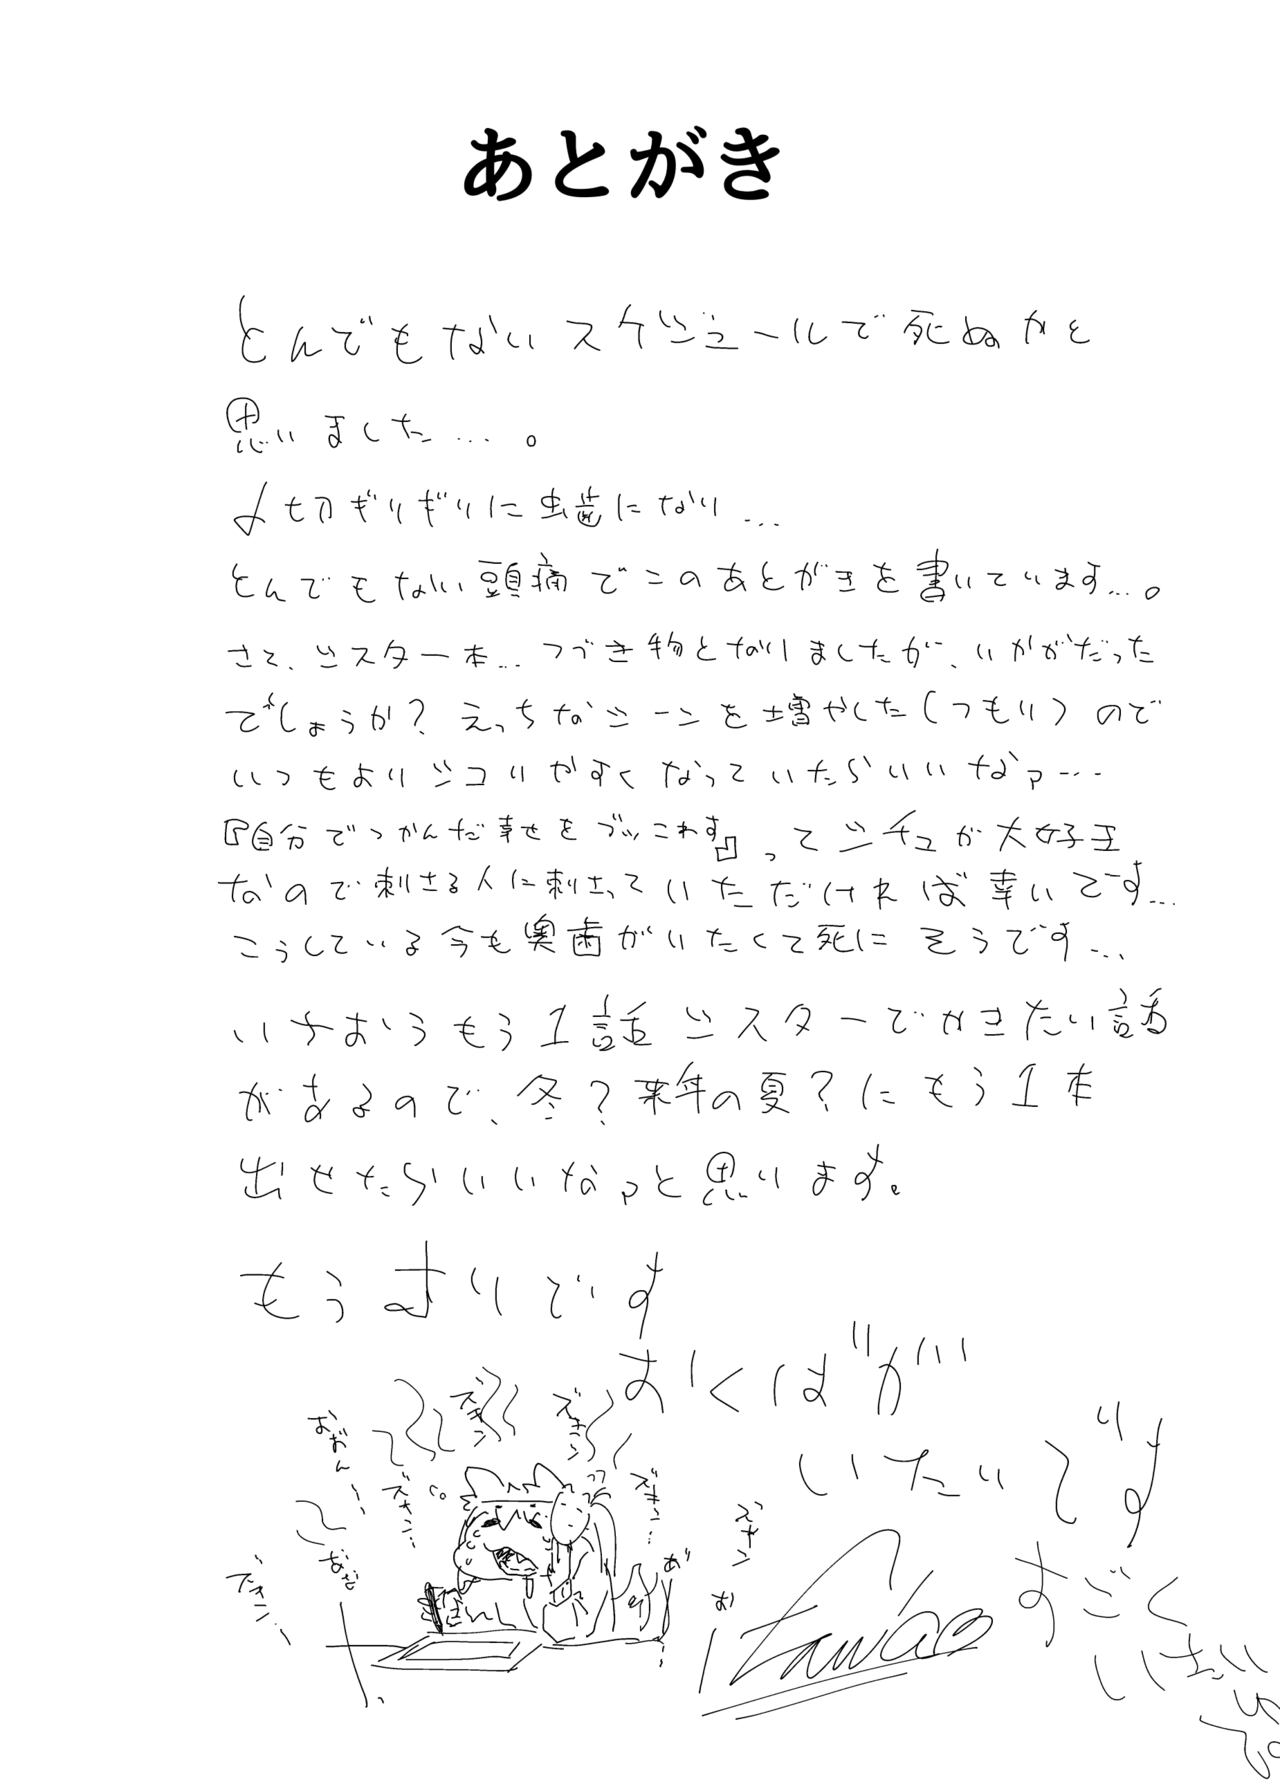 あとがき
とんでもないスケジュールで死ぬかと
思いました…。
〆切ギリギリに虫歯になり…
とんでもない頭痛でこのあとがきを書いています…。
さて、シスター本…つづき物となりましたが、いかがだった
でしょうか？えっちなシーンを増やした(つもり)ので
いつもよりシコりやすくなっていたらいいなァ…
『自分でつかんだ幸せをブッこわす』ってシチュが大好王
なので刺さる人に刺さっていただければ幸いです…
こうしている今も奥歯がいたくて死にそうです…
いちおうもう1話シスターでかきたい話
があるので、冬？来年の夏？にもう1本
出せたらいいなァと思います。
もうムリです
おくばが
いたいです
すごく
いたい
ズキン
ズキン
おおん…
ズキン…
ズキン…
ズキン